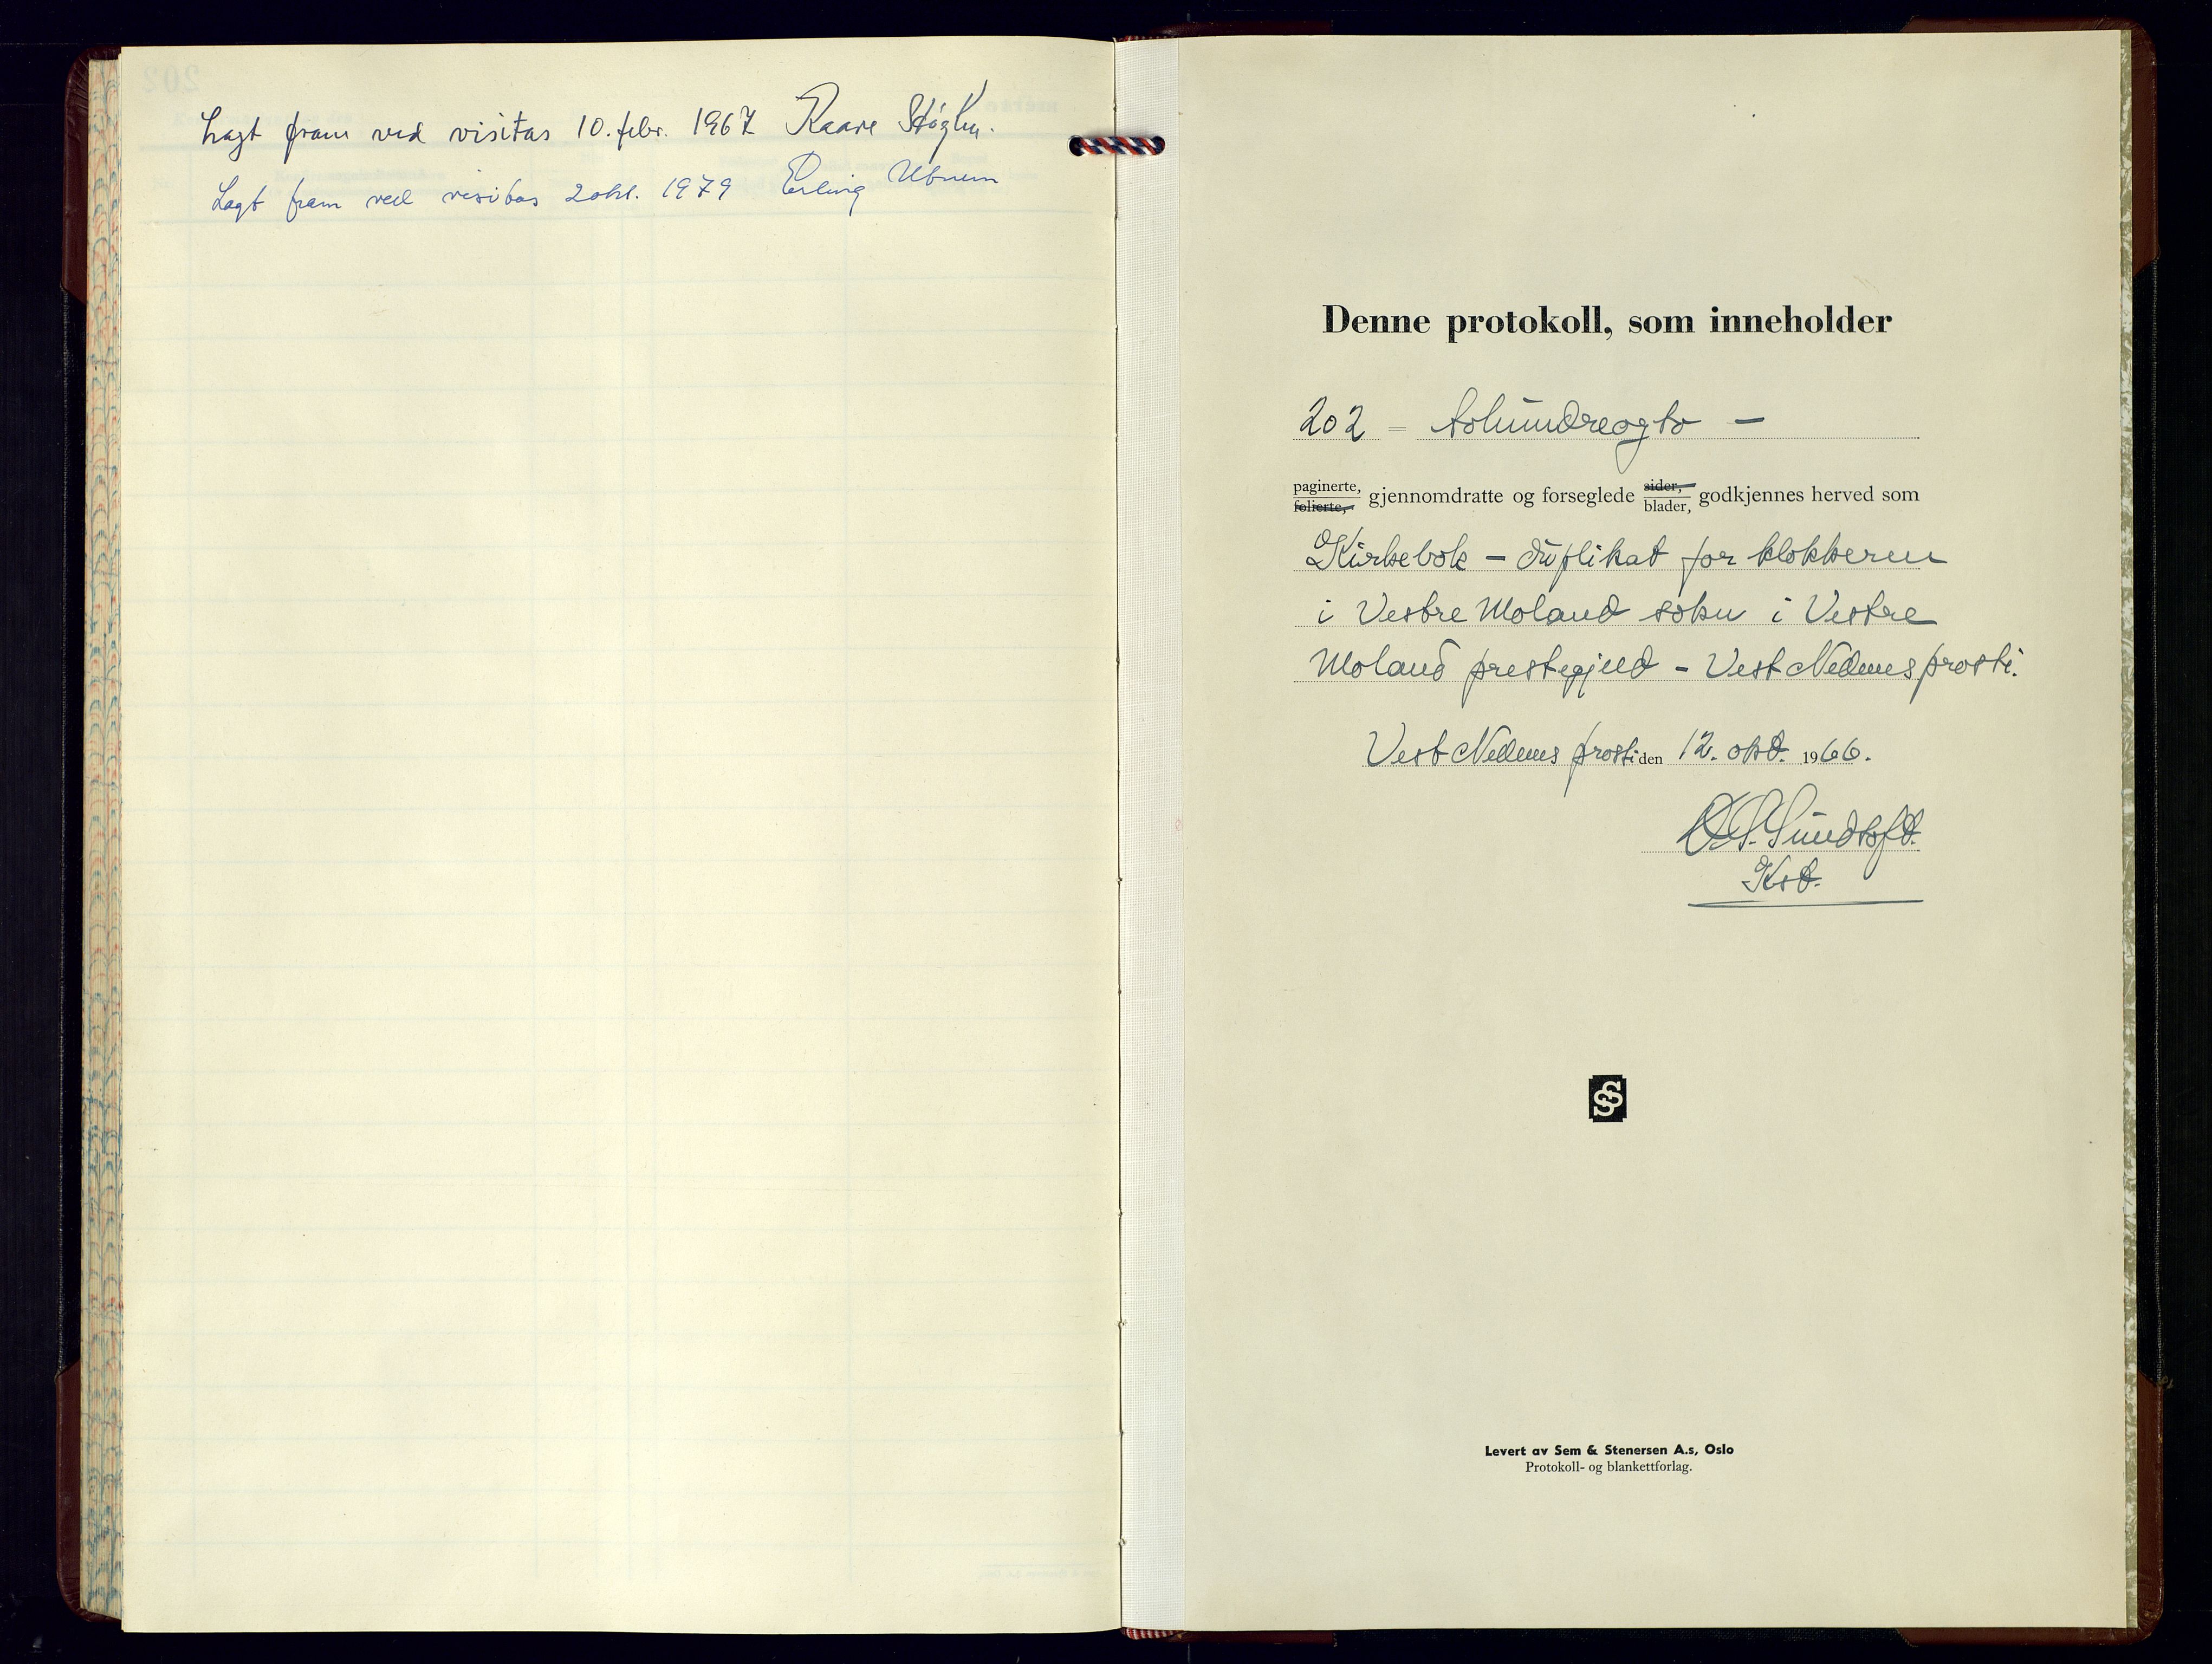 Lagt fram ved visitas 10. febr. 1967 Kaare Støylen.
Lagt fram ved visitas 2 okt. 1979 Erling Utnem
Denne protokoll, som inneholder
202 = tohundreogto —
paginerte,
folierte, gjennomdratte og forseglede sider,
blader, godkjennes herved som
Kirkebok – duplikat for klokkeren
i Vestre Moland sokn i Vestre
Moland prestegjeld – Vest Nedenes prosti.
Vest Nedenes prosti den 12. okt. 1966.
Sundtoft.
Kst.
SS
Levert av Sem & Stenersen A.s, Oslo
Protokoll- og blankettforlag.